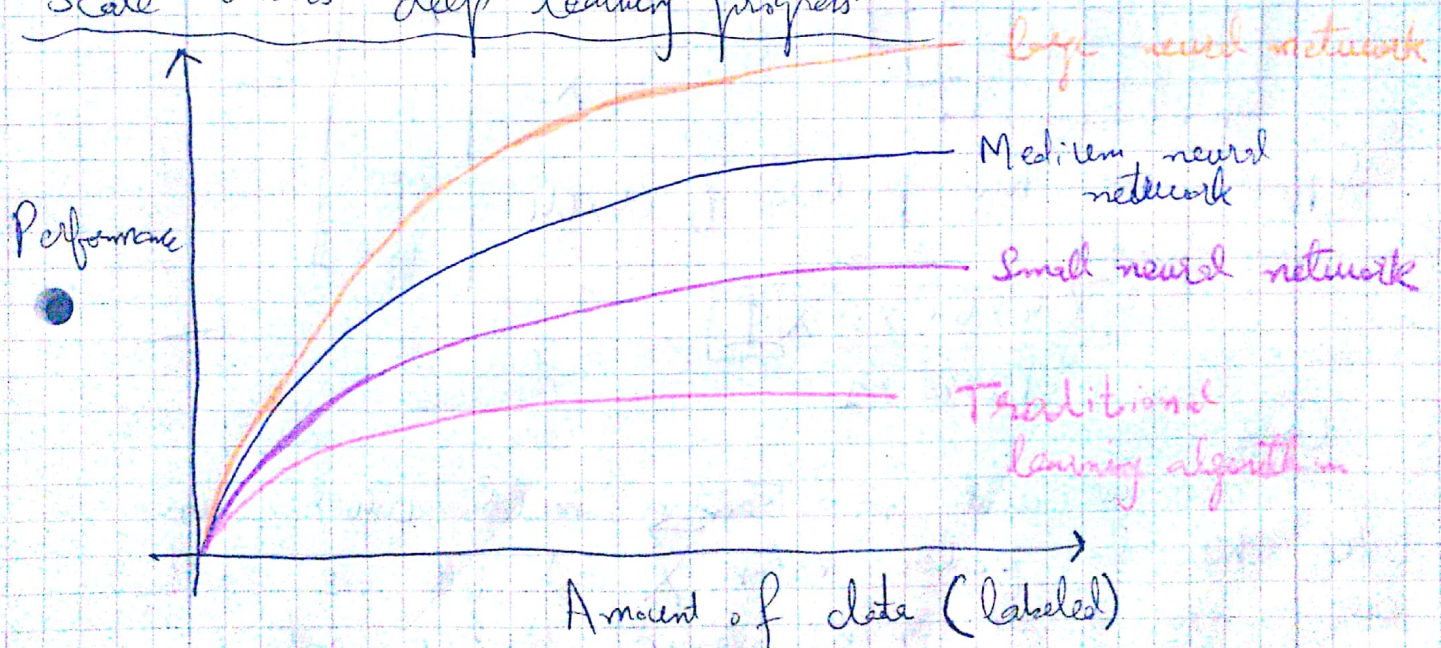 Scale drives deep learning progress
Large neural network
Medium neural
network
Performance
Small neural network
Traditional
learning algorithm
Amount of data (labeled)